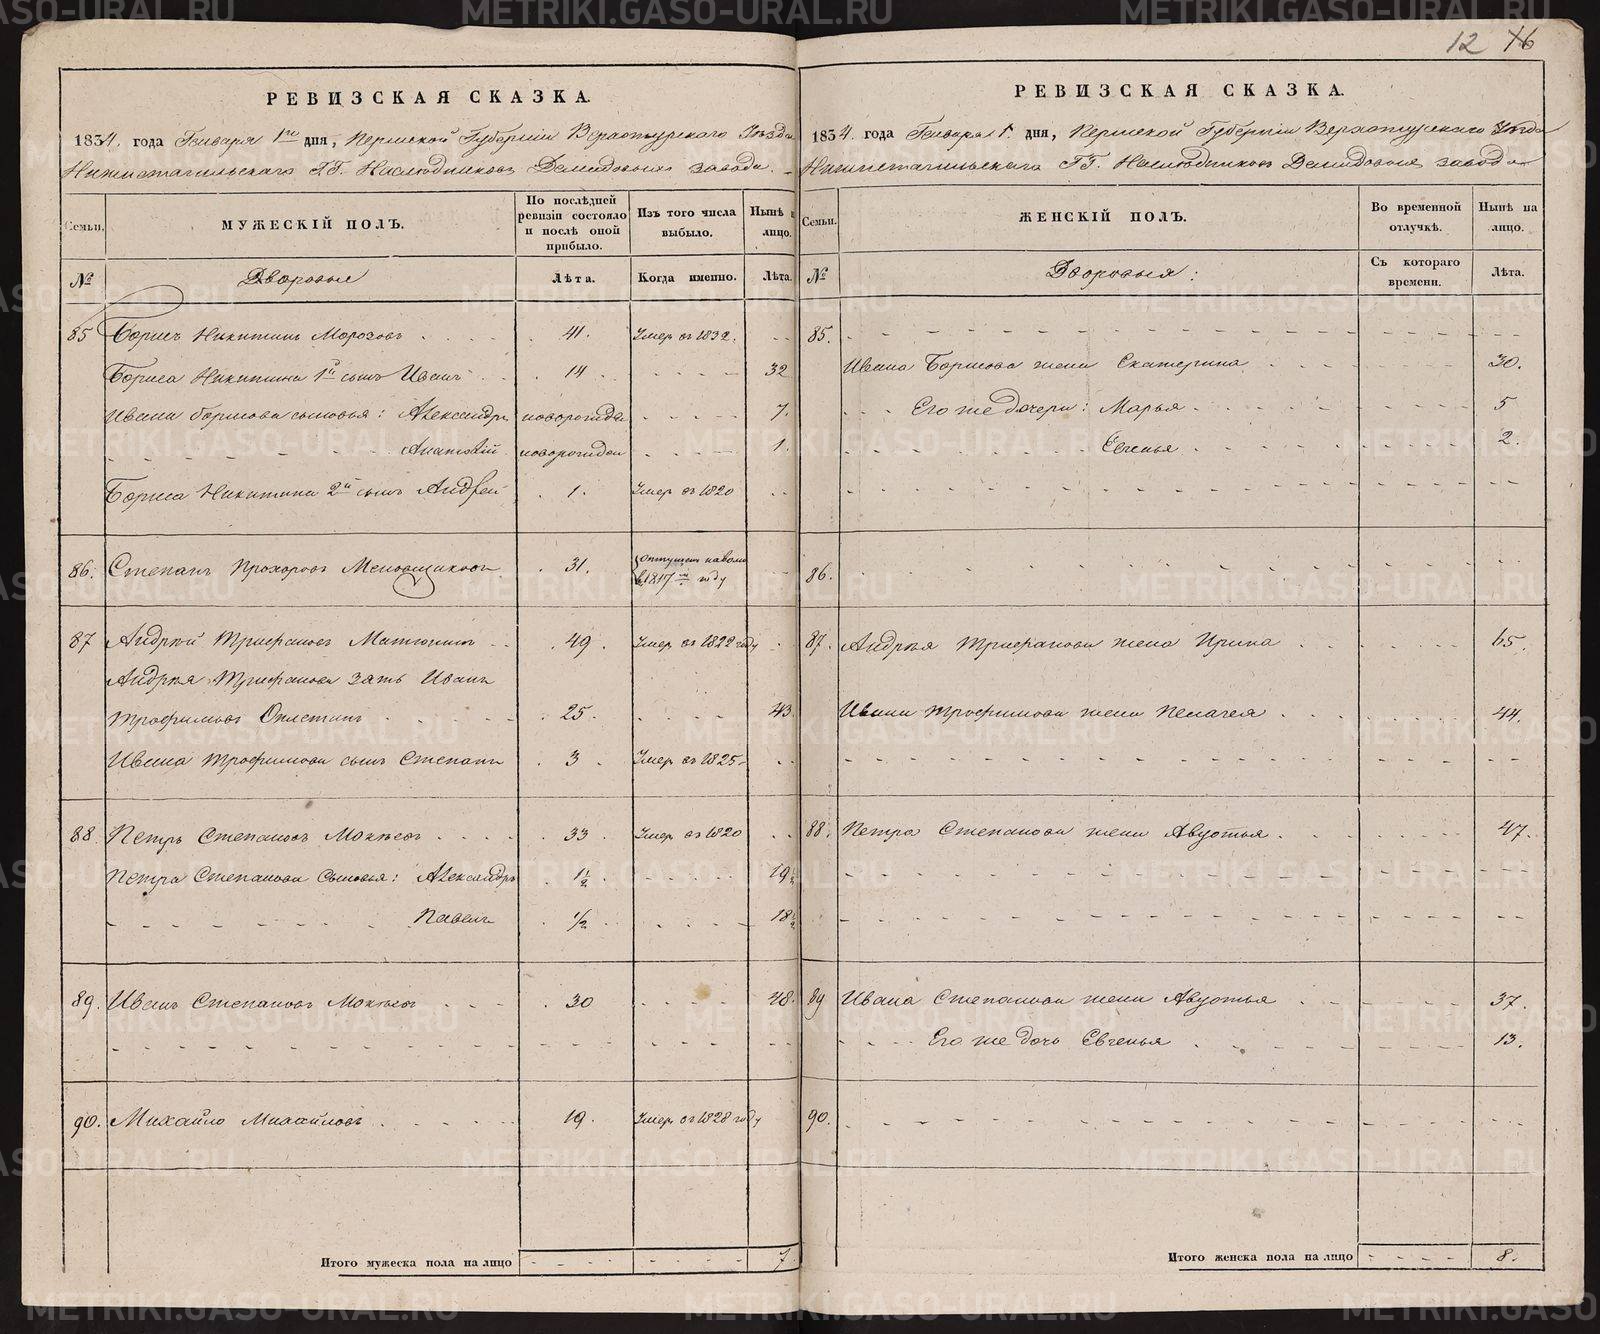 12 16
РЕВИЗСКАЯ СКАЗКА.
1834. года Генваря 1го дня, Пермской Губерніи Верхотурскаго Уѣзда
Нижнетагильскаго Г.Г. Наслѣдниковъ Демидовыхъ завода.
Семьи.
МУЖЕСКІЙ ПОЛЪ.
По послѣдней ревизіи состояло и послѣ оной прибыло.
Изъ того числа выбыло.
Нынѣ на лицо.
№
Дворовые
Лѣта.
Когда именно.
Лѣта.
85 Борисъ Никитинъ Морозовъ 41. Умер въ 1832.
Бориса Никитина 1й сынъ Иванъ 14 32
Ивана Борисова сыновья: Александръ новорожден 7.
Анатолій новорожден 1.
Бориса Никитина 2й сынъ Андрей 1. Умер въ 1820
86. Степанъ Прохоровъ Меновщиковъ 31. Отпущен на волю
в 1817м году
87 Андрѣй Трифановъ Матюнинъ 49. Умер въ 1822 году
Андрѣя Трифанова зать Иванъ
Трофимовъ Оплетинъ 25. 43
Ивана Трофимова сынъ Степанъ 3. Умер въ 1825
88 Петръ Степановъ Мокѣевъ 33 Умер въ 1820
Петра Степанова Сыновья: Александръ 1½ 19½
Павелъ 1/2 18½
89. Иванъ Степановъ Мокѣевъ 30 48.
90. Михайло Михайловъ 19. Умер въ 1828 году
Итого мужеска пола на лицо 7
РЕВИЗСКАЯ СКАЗКА.
1834. года Генваря 1. дня, Пермской Губерніи Верхотурскаго Уѣзда
Нижнетагильскаго Г.Г. Наслѣдниковъ Демидовыхъ завода
Семьи.
ЖЕНСКІЙ ПОЛЪ.
Во временной отлучкѣ.
Нынѣ на лицо.
№
Дворовыя:
Съ котораго времени.
Лѣта.
85.
Ивана Борисова жена Екатерина 30.
Его же дочери: Марья 5
Евгенья 2.
86.
87. Андрѣя Трифанова жена Ирина 65.
Ивана Трофимова жена Пелагея 44.
88. Петра Степанова жена Авдотья 47.
89 Ивана Степанова жена Авдотья 37.
Его же дочь Евгенья 13.
90.
Итого женска пола на лицо 8.
METRIKI.GASO-URAL.RU